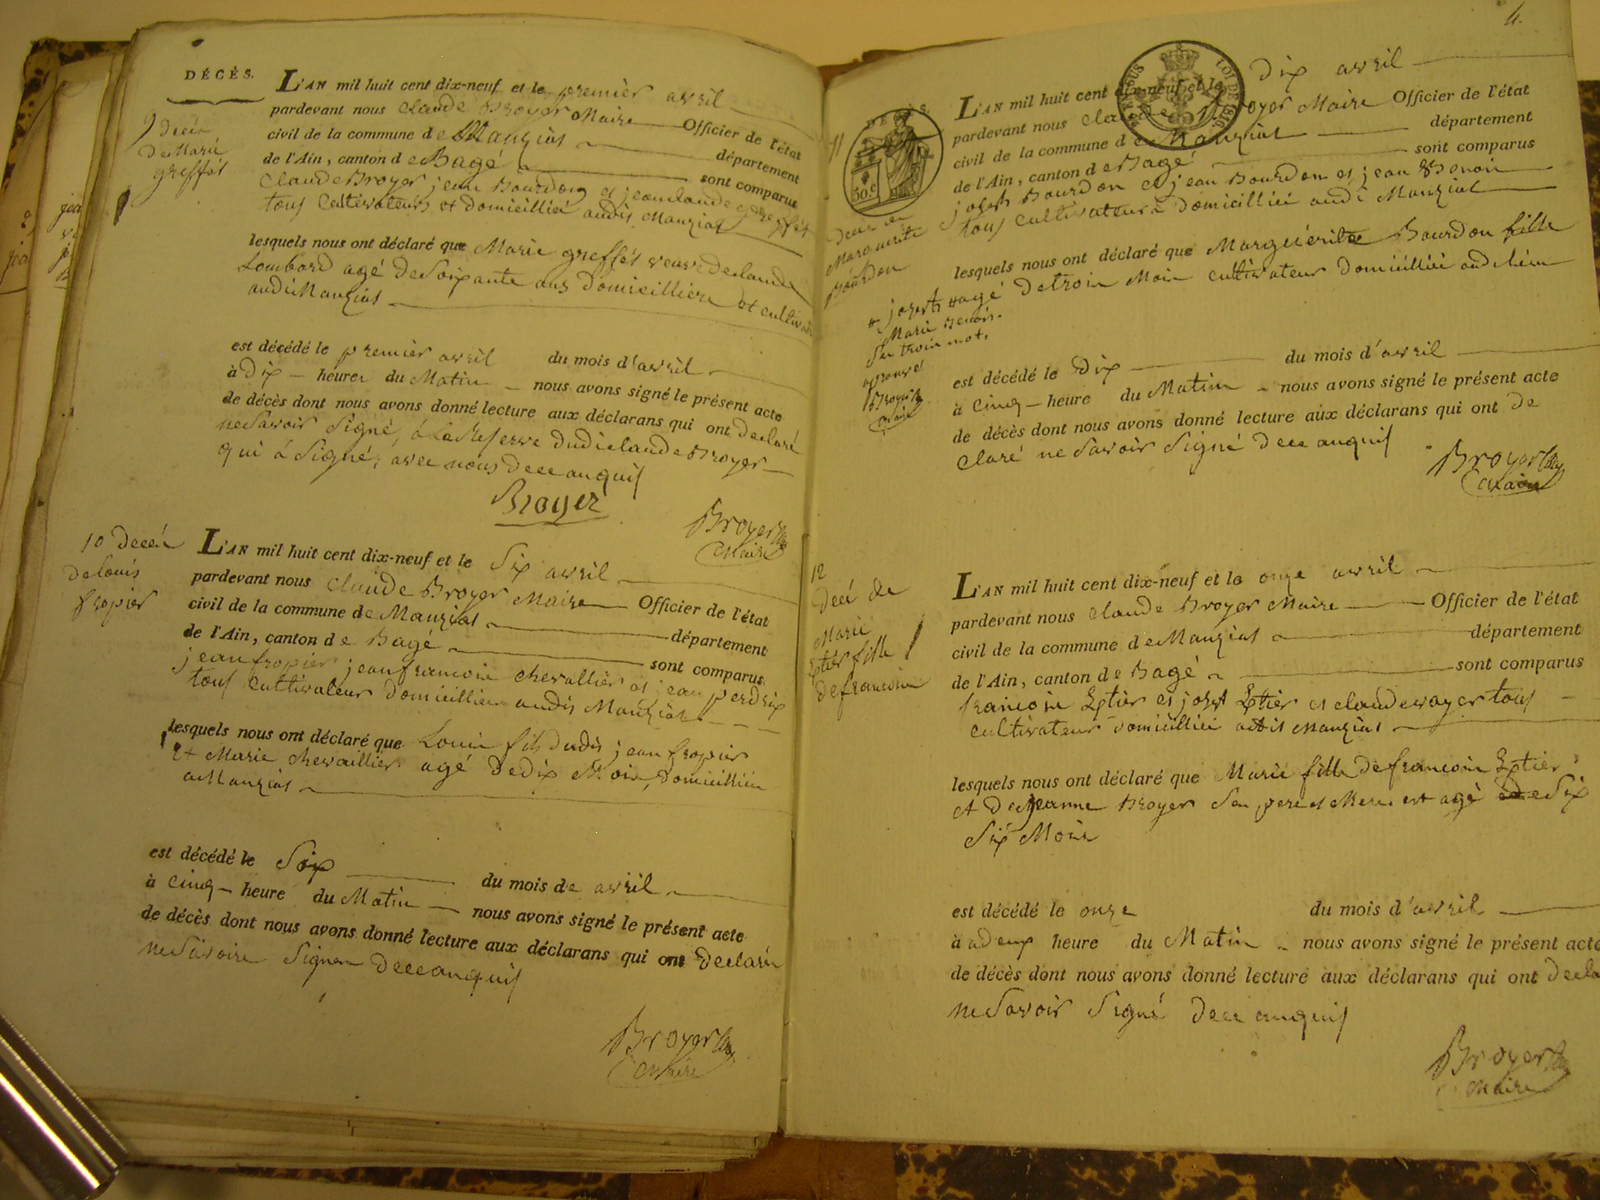 DÉCÈS.
9 décès
de Marie
greffet
L'AN mil huit cent dix-neuf et le premièr avril
pardevant nous Claude Broyer Maire Officier de l'état
civil de la commune de Manziat département
de l'Ain, canton de Bagé sont comparus
Claude Broyer jean Bourdon et jean claude greffet
tous cultivateurs et domicilliéé audit Manziat
lesquels nous ont déclaré que Marie greffet veuve declaude
Lombard agé de Soixante ans domicilliére et cultiva
audit Manziat
est décédé le premièr avril du mois d'avril
à Dix heures du Matin nous avons signé le présent acte
de décès dont nous avons donné lecture aux déclarans qui ont declaré
ne Savoir Signé, à La Reserve dudit claude Broyer
qui à Signé, avec nous dece anquis
Broyer
Broyer
Maire
10 decéé
de Louis
fropier
L'AN mil huit cent dix-neuf et le Six avril
pardevant nous Claude Broyer Maire Officier de l'état
civil de la commune de Manziat département
de l'Ain, canton de Bagé sont comparus
jean fropier jean francois chevallier et jean perdrix
tous cultivateur domicillier audit Manziat
lesquels nous ont déclaré que Louis fils dudit jean fropier
Et Marie chevaillier agé de dix Mois, Domicilliée
a Manziat
est décédé le Six du mois de avril
à Cinq heure du Matin nous avons signé le présent acte
de décès dont nous avons donné lecture aux déclarans qui ont declaré
ne Savoire Signer dece anquis
Broyer
Maire
4.
50.c
11
decé de
Marguerite
Bourdon
L'AN mil huit cent dix-neuf et le Dix avril
pardevant nous claude Broyer Maire Officier de l'état
civil de la commune de Manziat département
de l'Ain, canton de Bagé sont comparus
joseph Bourdon et jean Bourdon et jean Benoit
tous cultivateurs domicilliéé audit Manziat
lesquels nous ont déclaré que Marguérite Bourdon fille
agé de trois Mois cultivateur domicilliéé audit lieu
joseph
Marie Benoit.
Les trois mots
approuvés
Broyer
Maire
est décédé le Dix du mois d'avril
à Cinq heure du Matin nous avons signé le présent acte
de décès dont nous avons donné lecture aux déclarans qui ont de
claré ne Savoir Signé dece anquis
Broyer
Maire
12
decé de
Marie
Eptier fille
de francois
L'AN mil huit cent dix-neuf et le onze avril
pardevant nous claude Broyer Maire Officier de l'état
civil de la commune de Manziat département
de l'Ain, canton de Bagé sont comparus
francois Eptier et joseph Eptier et claude royer tous
cultivateur domicilliéé audit Manziat
lesquels nous ont déclaré que Marie fille de francois Eptier
et de jeanne Broyer Son pere et Mere est agé de Six
Six Mois
est décédé le onze du mois d'avril
à adeux heure du Matin nous avons signé le présent acte
de décès dont nous avons donné lecture aux déclarans qui ont decla
ne Savoir Signé dece anquis
Broyer
Maire